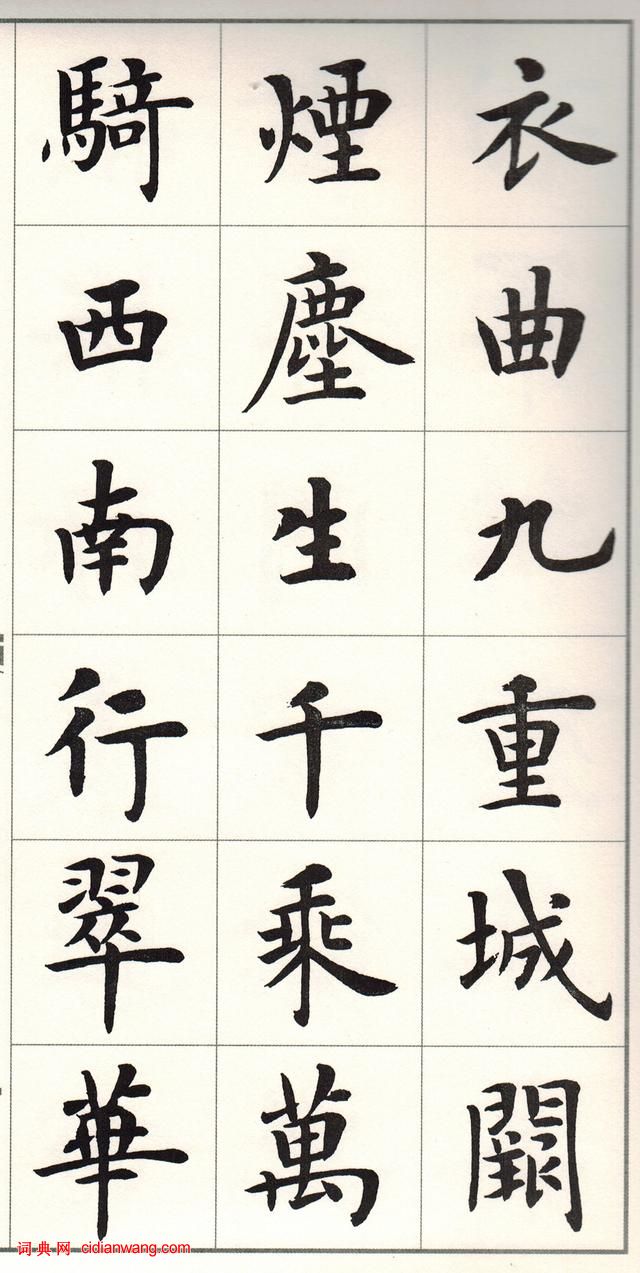 衣曲九重城闕
煙塵生千乘萬
騎西南行翠華
词典网 cidianwang.com